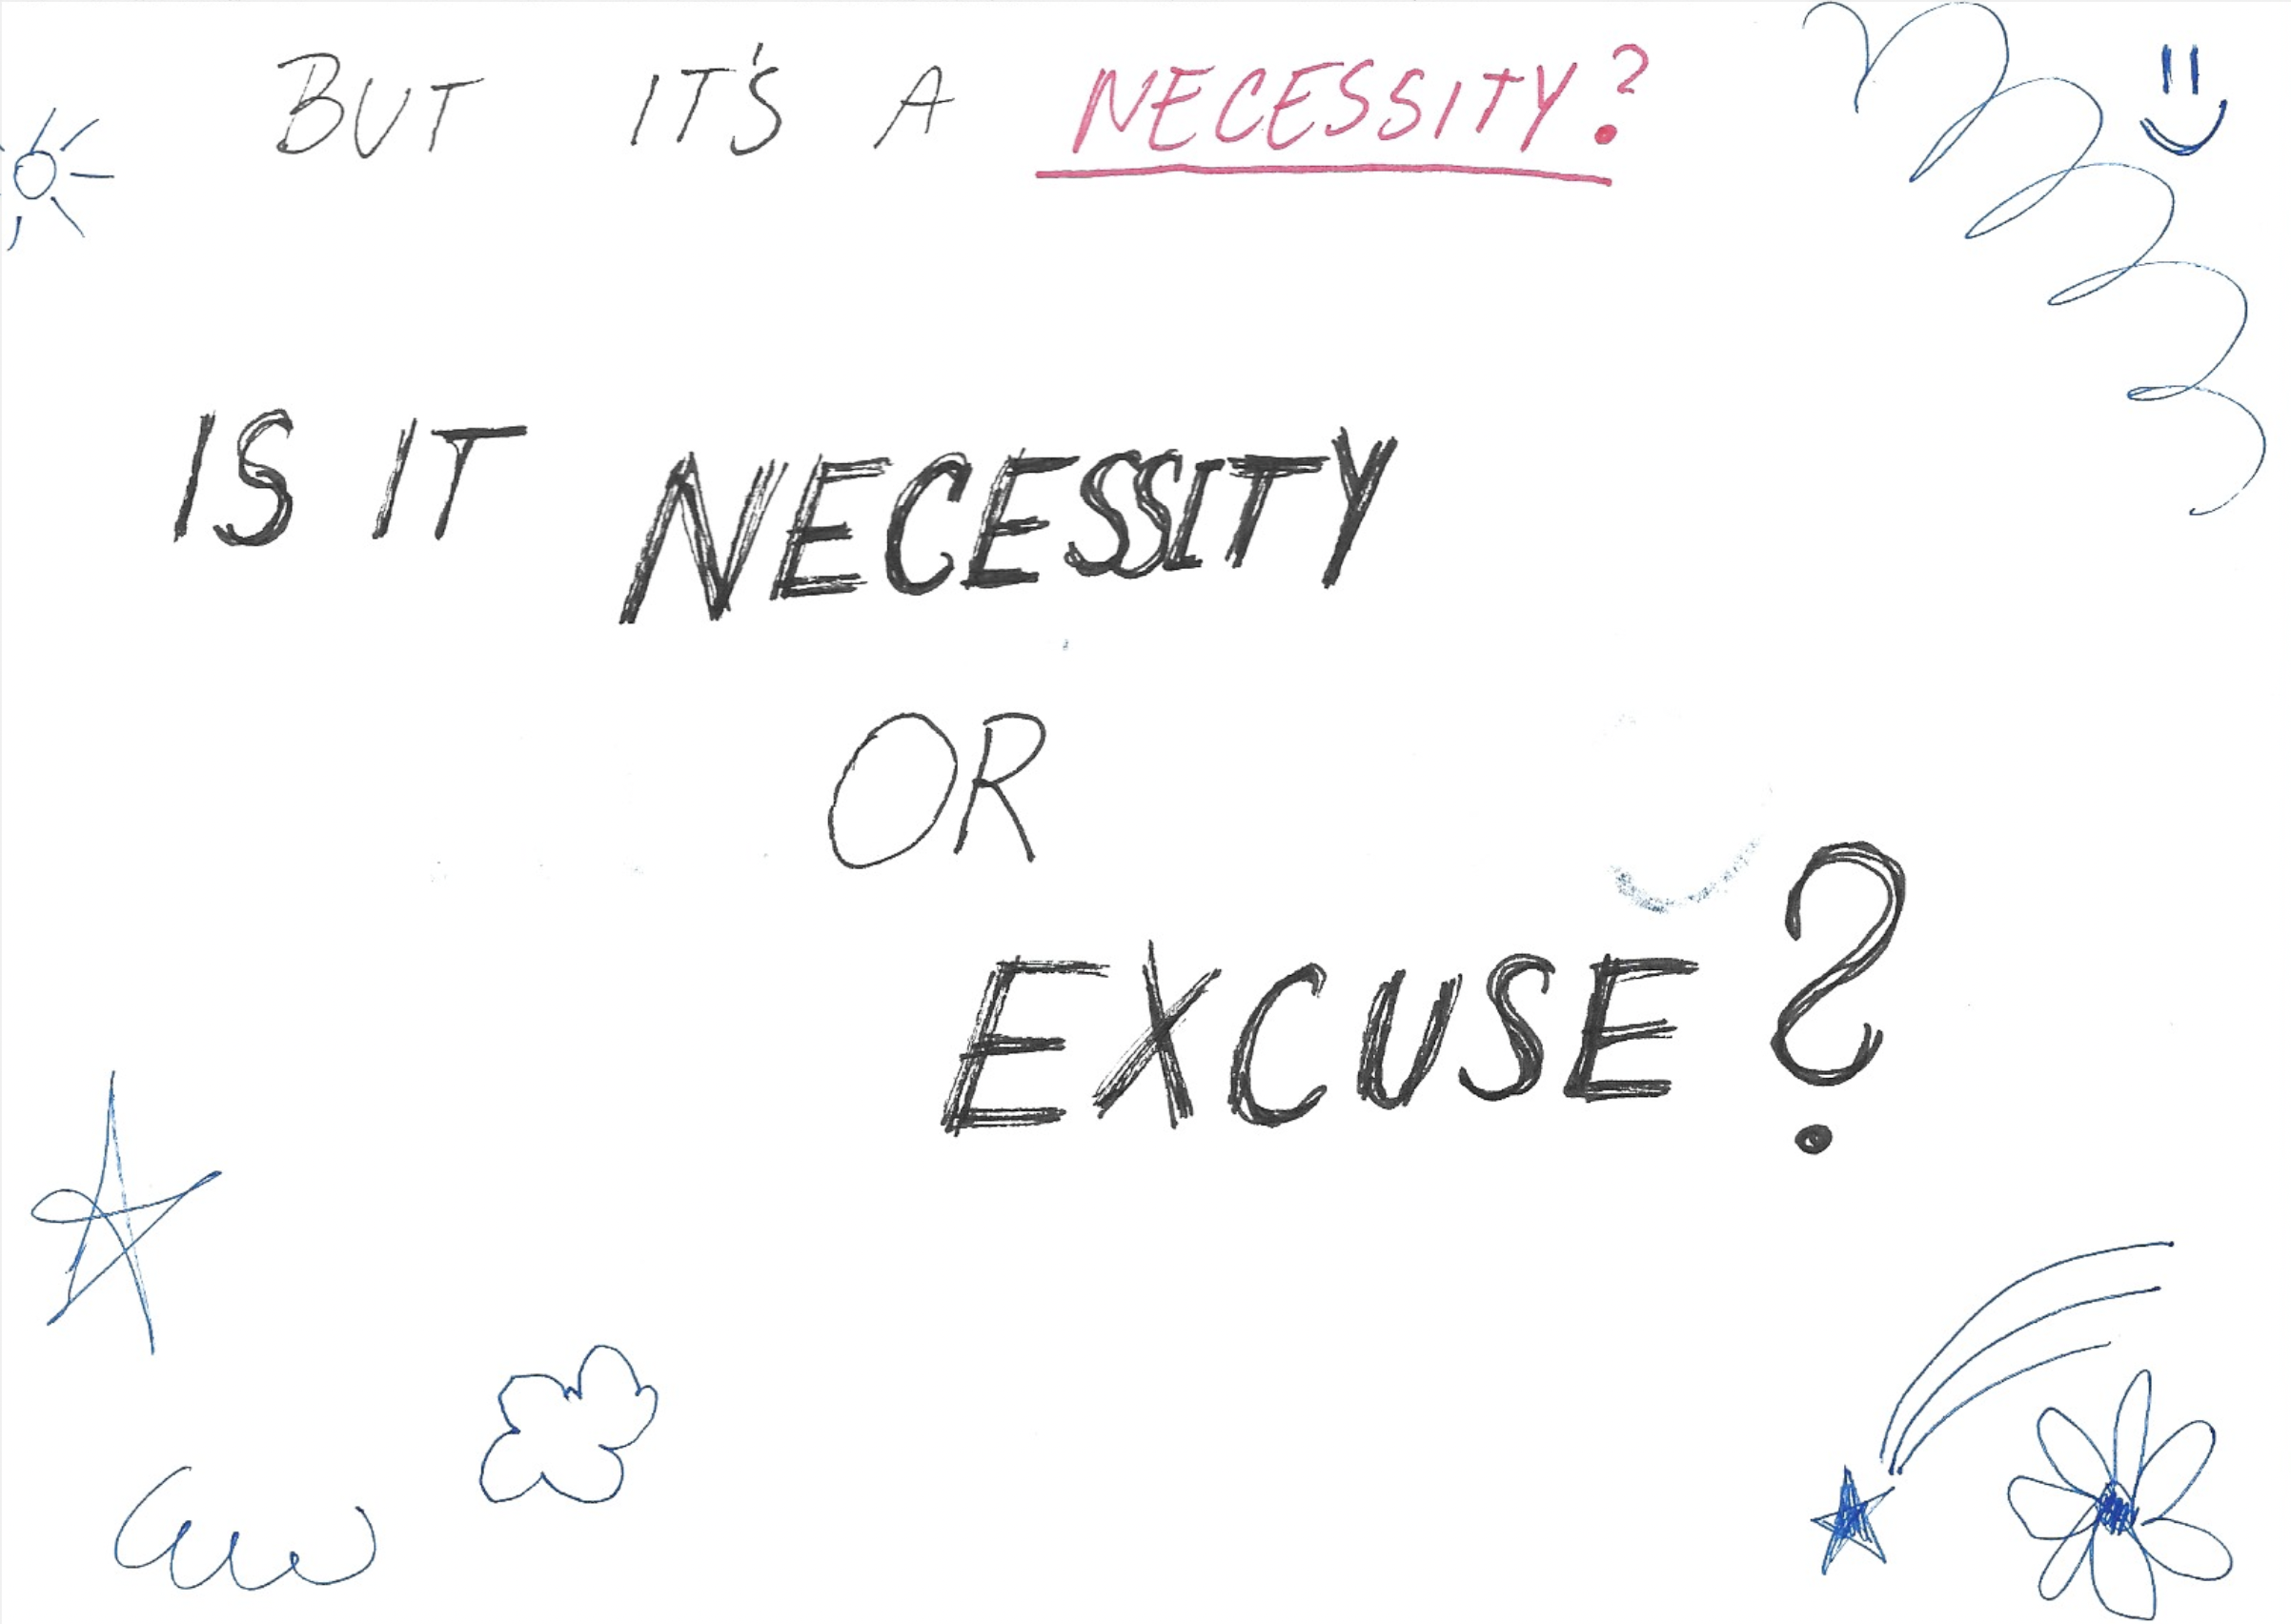 BUT IT'S A NECESSITY?
IS IT NECESSITY
OR
EXCUSE?